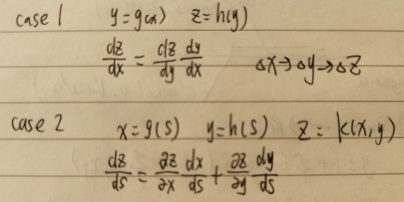 case 1 y=g(x) z=h(y)
dz/dx = dz/dy dy/dx Δx→Δy→Δz
case 2 x=g(s) y=h(s) z=k(x,y)
dz/ds = ∂z/∂x dx/ds + ∂z/∂y dy/ds